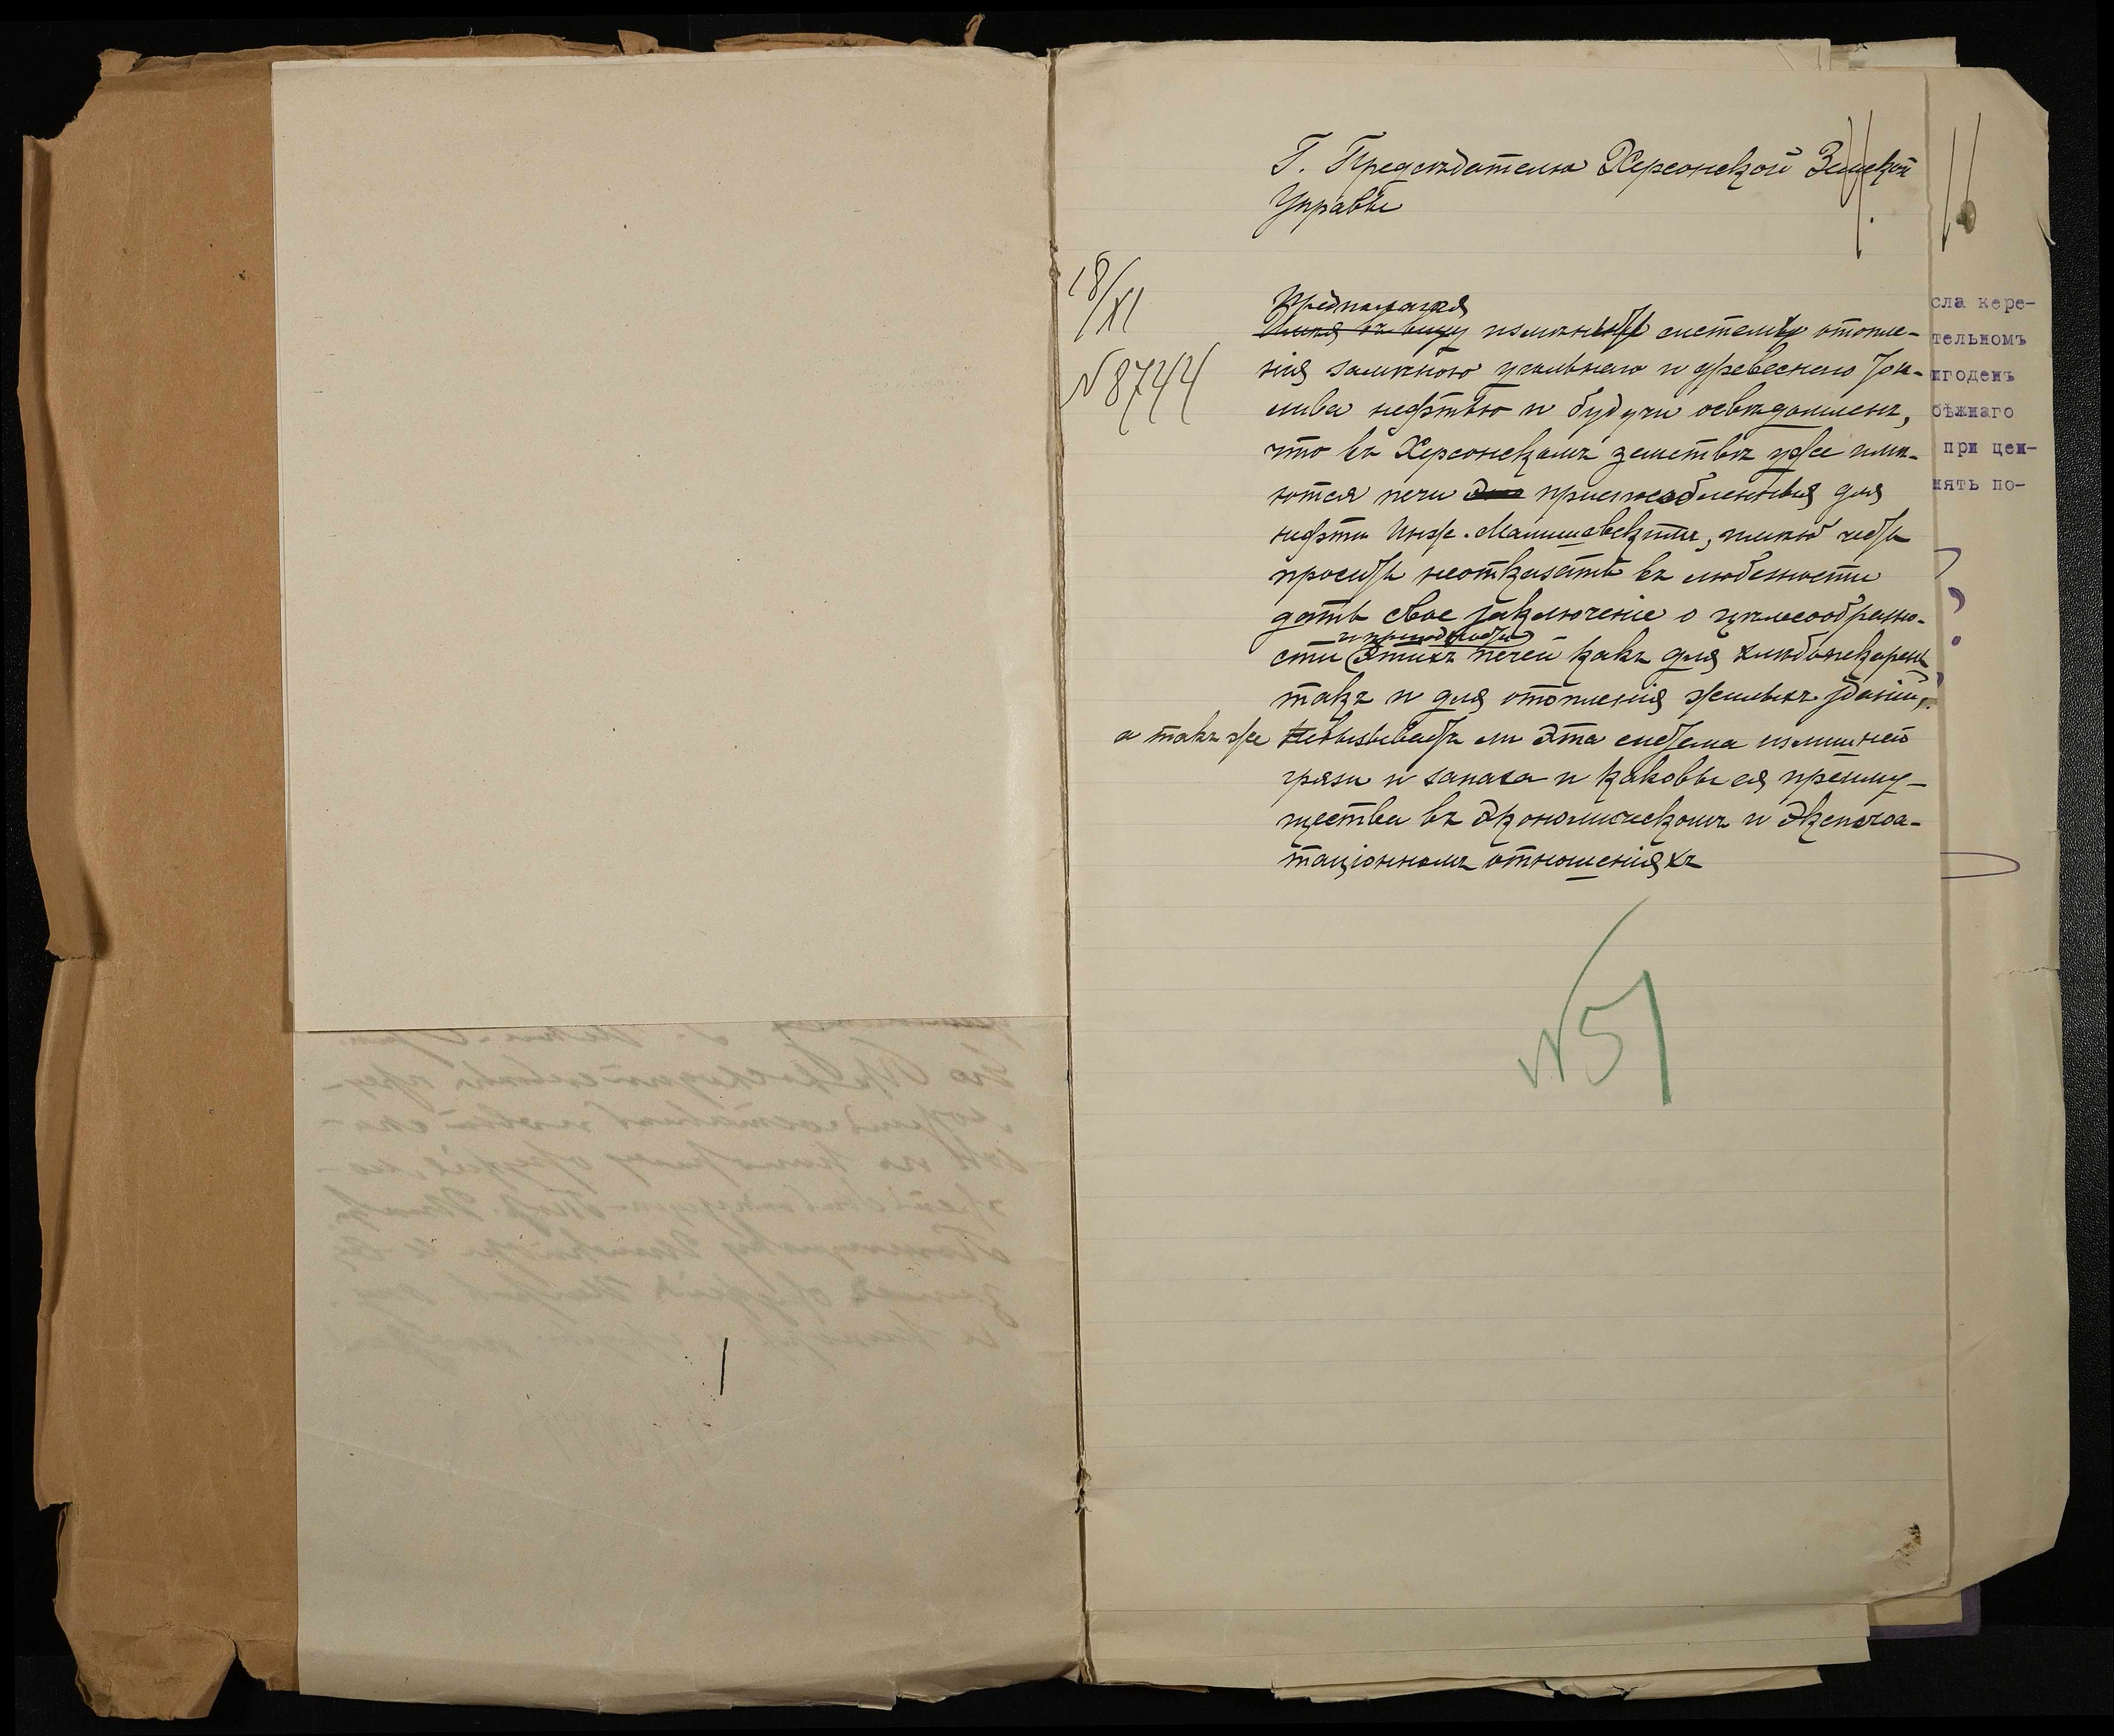 Г. Предсѣдателю Херсонской Земской
Управы
18/XI
№ 8744
Предполагая
Имѣя въ виду измѣнить систему отопле-
нія замѣною угольнаго и древеснаго топ-
лива нефтью и будучи освѣдомленъ,
что въ Херсонскомъ земствѣ уже имѣ-
ются печи приспособленныя для
нефти Инж. Малишевскимъ, имѣю честь
просить неотказать въ любезности
дать свое заключеніе о цѣлесообразно-
сти этихъ печей какъ для хлѣбопекарень
и пригодности
такъ и для отопленія жилыхъ зданій,
а такъ же невызываетъ ли эта система излишней
грязи и запаха и каковы ея преиму-
щества въ экономическомъ и эксплоа-
таціонномъ отношеніяхъ
№ 51
сла кере-
тельномъ
игоденъ
бѣжнаго
при цен-
нять по-